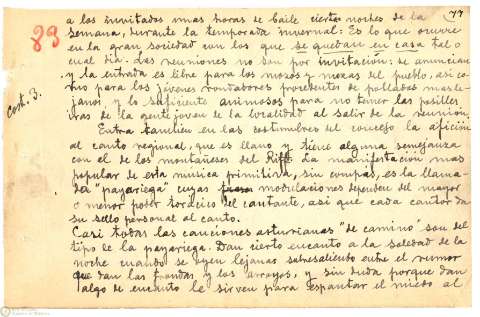 77
83
a los invitados unas horas de baile ciertas noches de la
semana, durante la temporada invernal: Es lo que ocurre
en la gran sociedad con los que se quedan en casa tal o
cual dia. Las reuniones no son por invitación: se anuncian
y la entrada es libre para los mozos y mozas del pueblo, asi co-
mo para los jóvenes rondadores procedentes de poblados mas le-
janos, y lo suficiente animosos para no temer las
de la gente joven de la localidad al salir de la reunión.
Cost. 3.
Entra tambien en las costumbres del concejo la afición
al canto regional, que es llano y tiene alguna semejanza
con el de los montañeses del Riff. La manifestación mas
popular de esta musica primitiva, sin compas, es la llama-
da "payariega" cuyas modulaciones dependen del mayor
o menor poder torácico del cantante, asi que cada cantor da
su sello personal al canto.
Casi todas las canciones asturianas "de camino" son del
tipo de la payariega. Dan cierto encanto a la soledad de la
noche cuando se oyen lejanas sobresaliendo entre el rumor
que dan las frondas y los arroyos, y sin duda porque dan
algo de encanto le sirven para espantar el miedo al